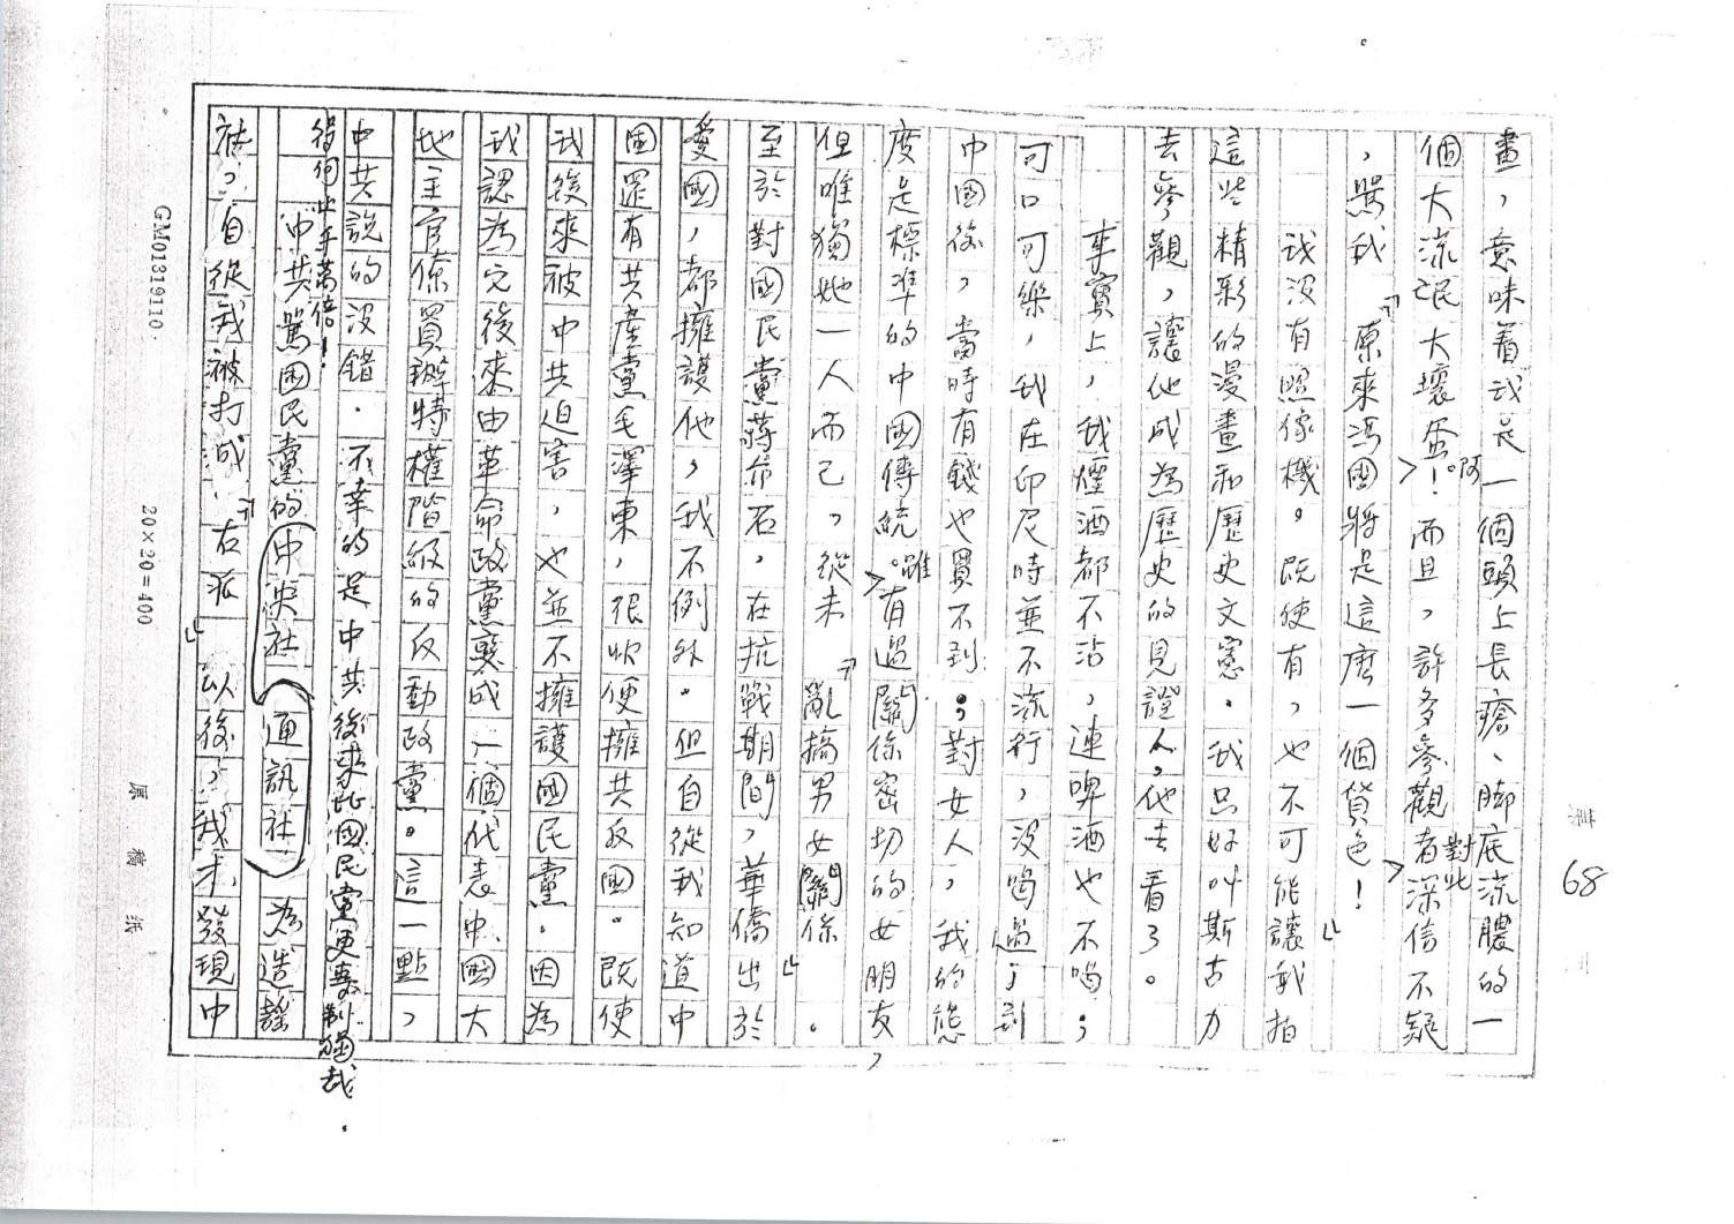 第 68
畫，意味着我是一個頭上長瘡、脚底流膿的一
個大流氓大壞蛋啊！而且，許多參觀者對此深信不疑
，罵我『原來馮國將是這麽一個貨色！』
我没有照像機。既使有，也不可能讓我拍
這些精彩的漫畫和歷史文憲．我只好叫斯古力
去參觀，讓他成為歷史的見證人，他去看了。
事實上，我煙酒都不沾，連啤酒也不喝；
可口可樂，我在印尼時並不流行，没喝過，到
中國後，當時有錢也買不到；對女人，我的態
度是標準的中國傳統。雖有過關係密切的女朋友，
但唯獨她一人而已，從未『亂搞男女關係』。
至於對國民黨蔣介石，在抗戰期間，華僑出於
愛國，都擁護他，我不例外。但自從我知道中
國還有共產黨毛澤東，很快便擁共反國。既使
我後來被中共迫害，也並不擁護國民黨．因為
我認為它後來由革命政黨變成一個代表中國大
地主官僚買辦特權階級的反動政黨。這一點，
中共説的没錯．不幸的是中共後來比國民黨更專制獨裁．
得何止千萬倍！
中共罵國民黨的中央社通訊社為造謠
社，自從我被打成『右派』以後，我才發現中
GM01319110.
20×20=400
原稿紙